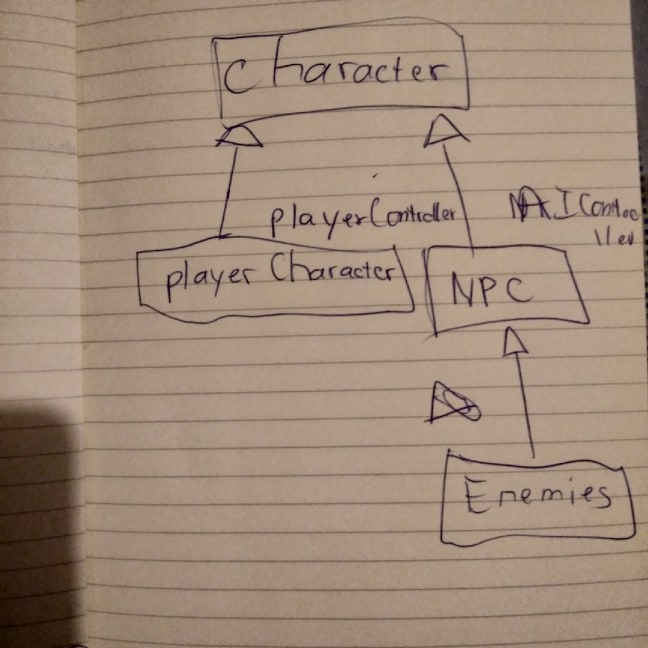 Character
playerController
AIContro
ller
player Character
NPC
Enemies